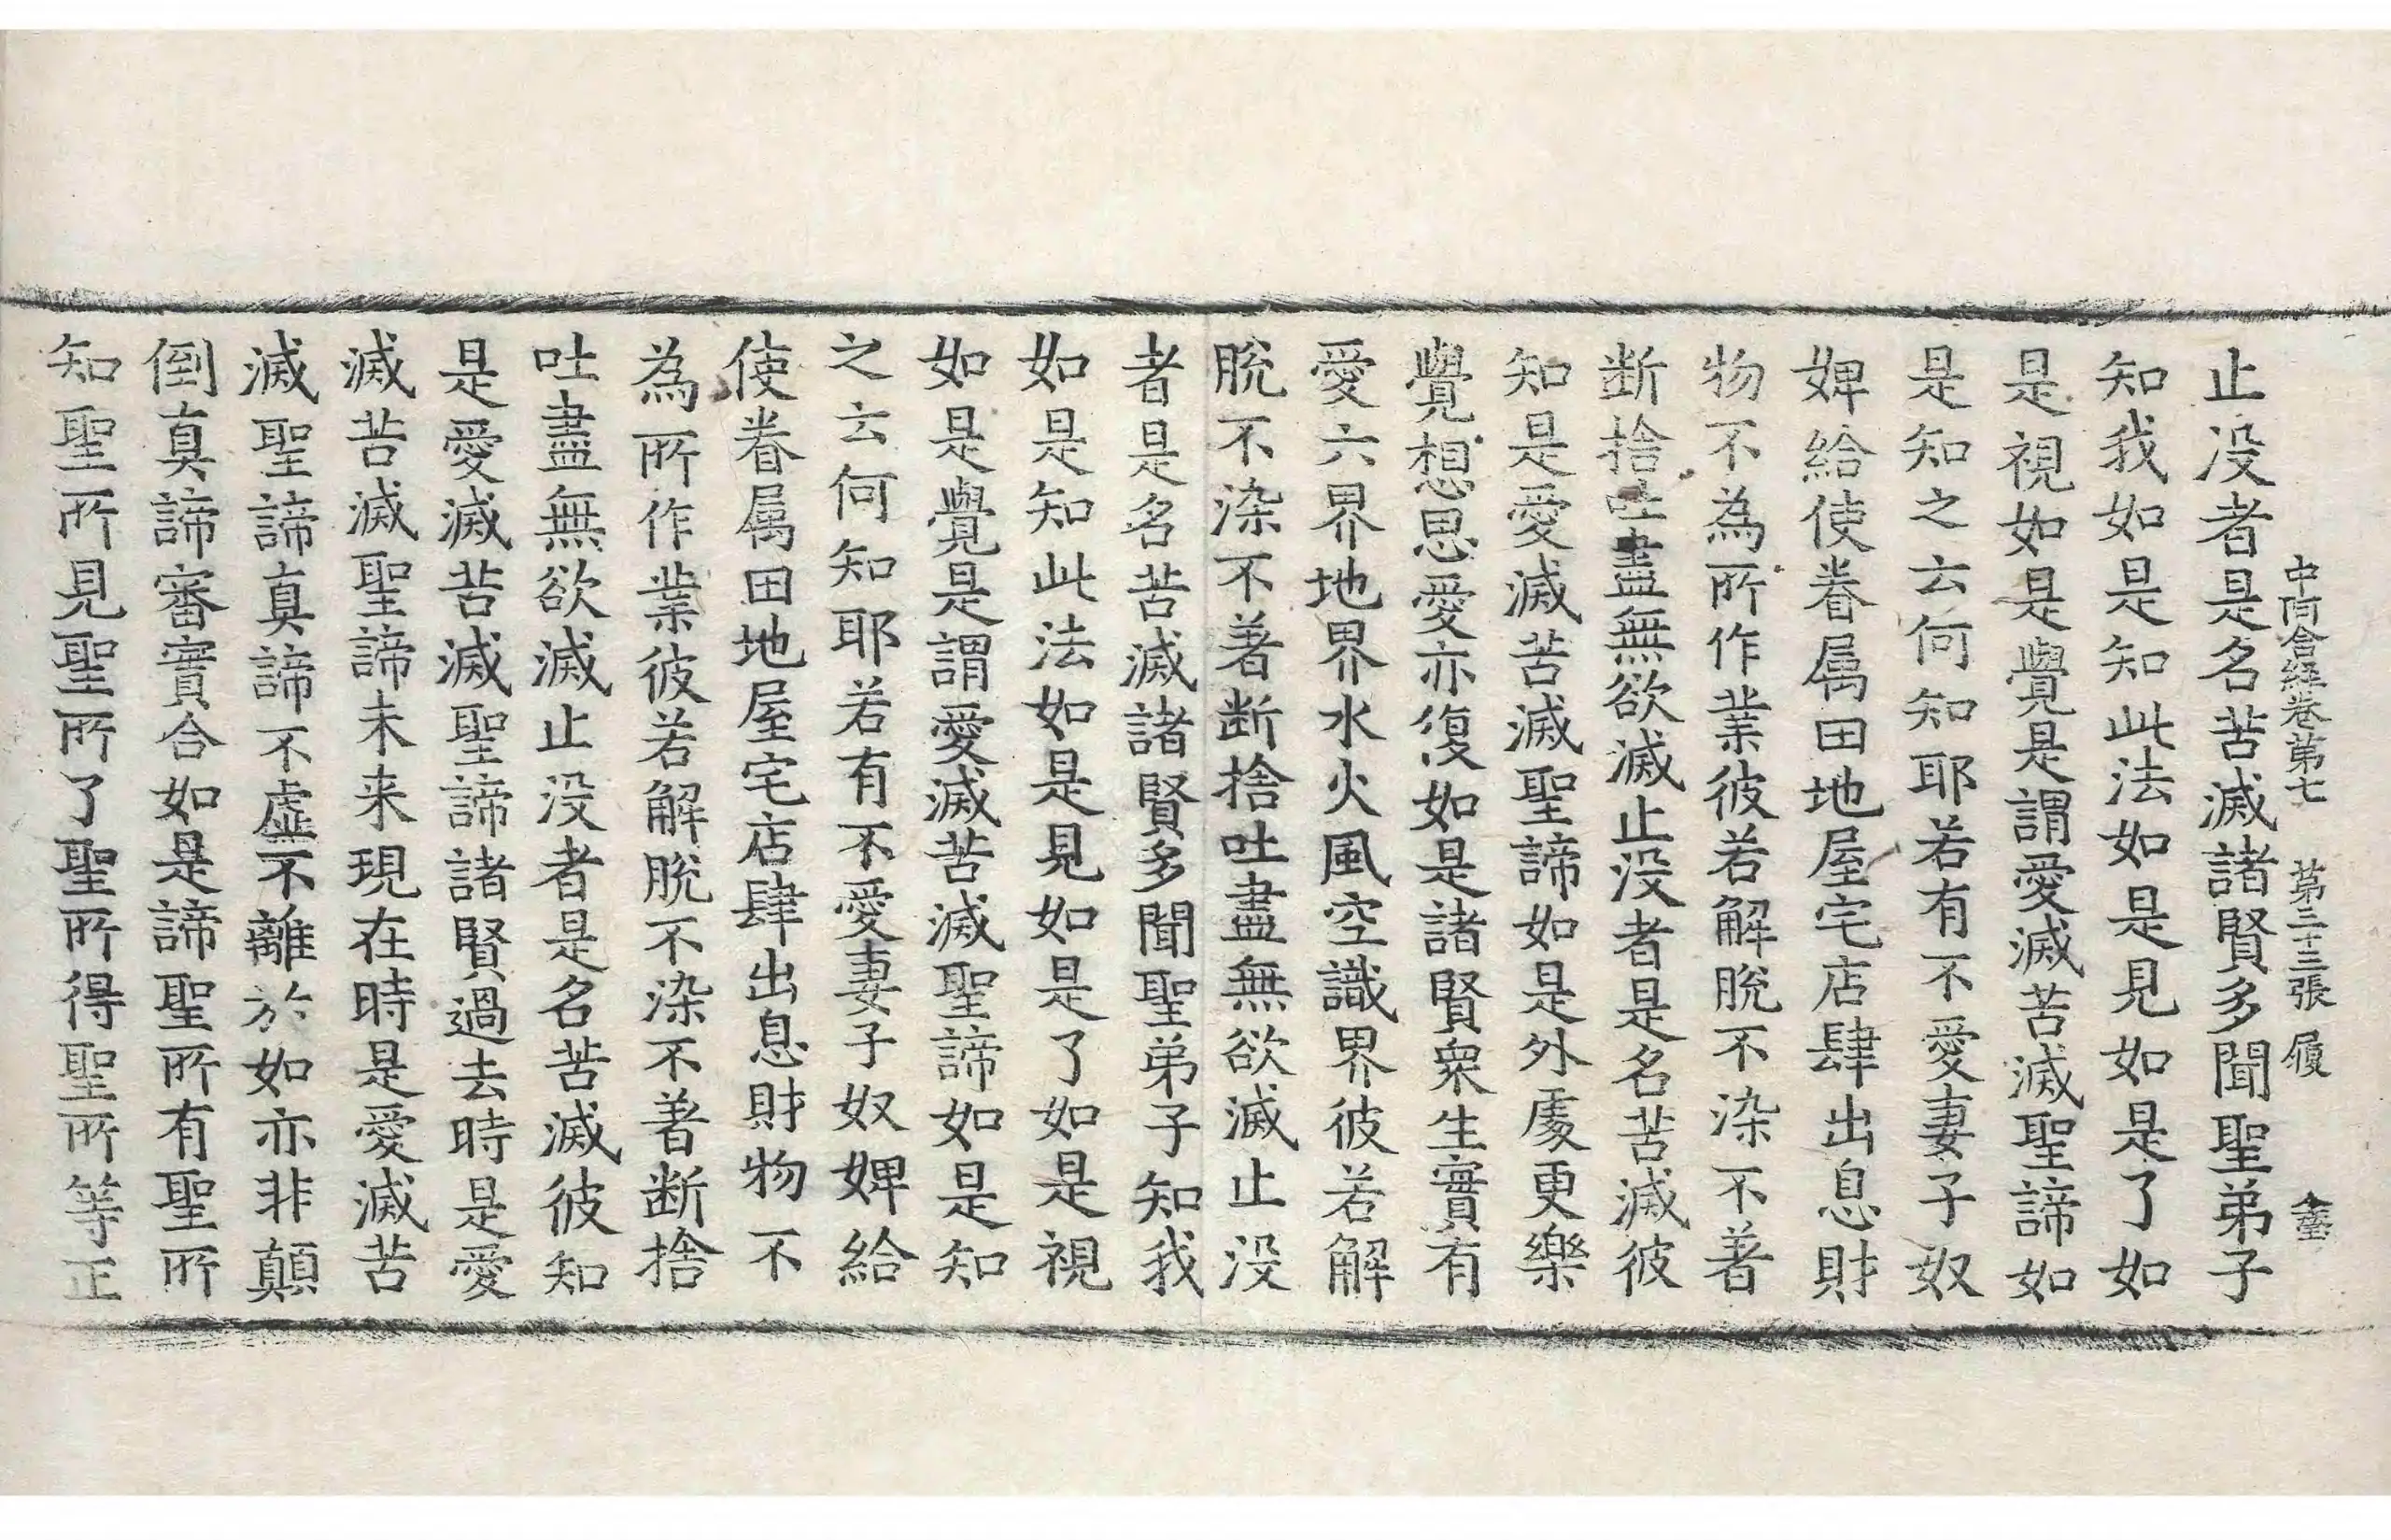 中阿含經卷第七　第二十三張　履
止没者是名苦滅諸賢多聞聖弟子
知我如是知此法如是見如是了如
是視如是覺是謂愛滅苦滅聖諦如
是知之云何知耶若有不愛妻子奴
婢給使眷属田地屋宅店肆出息財
物不為所作業彼若解脫不染不著
断捨吐盡無欲滅止没者是名苦滅彼
知是愛滅苦滅聖諦如是外處更樂
覺想思愛亦復如是諸賢衆生實有
愛六界地界水火風空識界彼若解
脫不染不著断捨吐盡無欲滅止没
者是名苦滅諸賢多聞聖弟子知我
如是知此法如是見如是了如是視
如是覺是謂愛滅苦滅聖諦如是知
之云何知耶若有不愛妻子奴婢給
使眷属田地屋宅店肆出息財物不
為所作業彼若解脫不染不著断捨
吐盡無欲滅止没者是名苦滅彼知
是愛滅苦滅聖諦諸賢過去時是愛
滅苦滅聖諦未来現在時是愛滅苦
滅聖諦真諦不虛不離於如亦非顛
倒真諦審實合如是諦聖所有聖所
知聖所見聖所了聖所得聖所等正